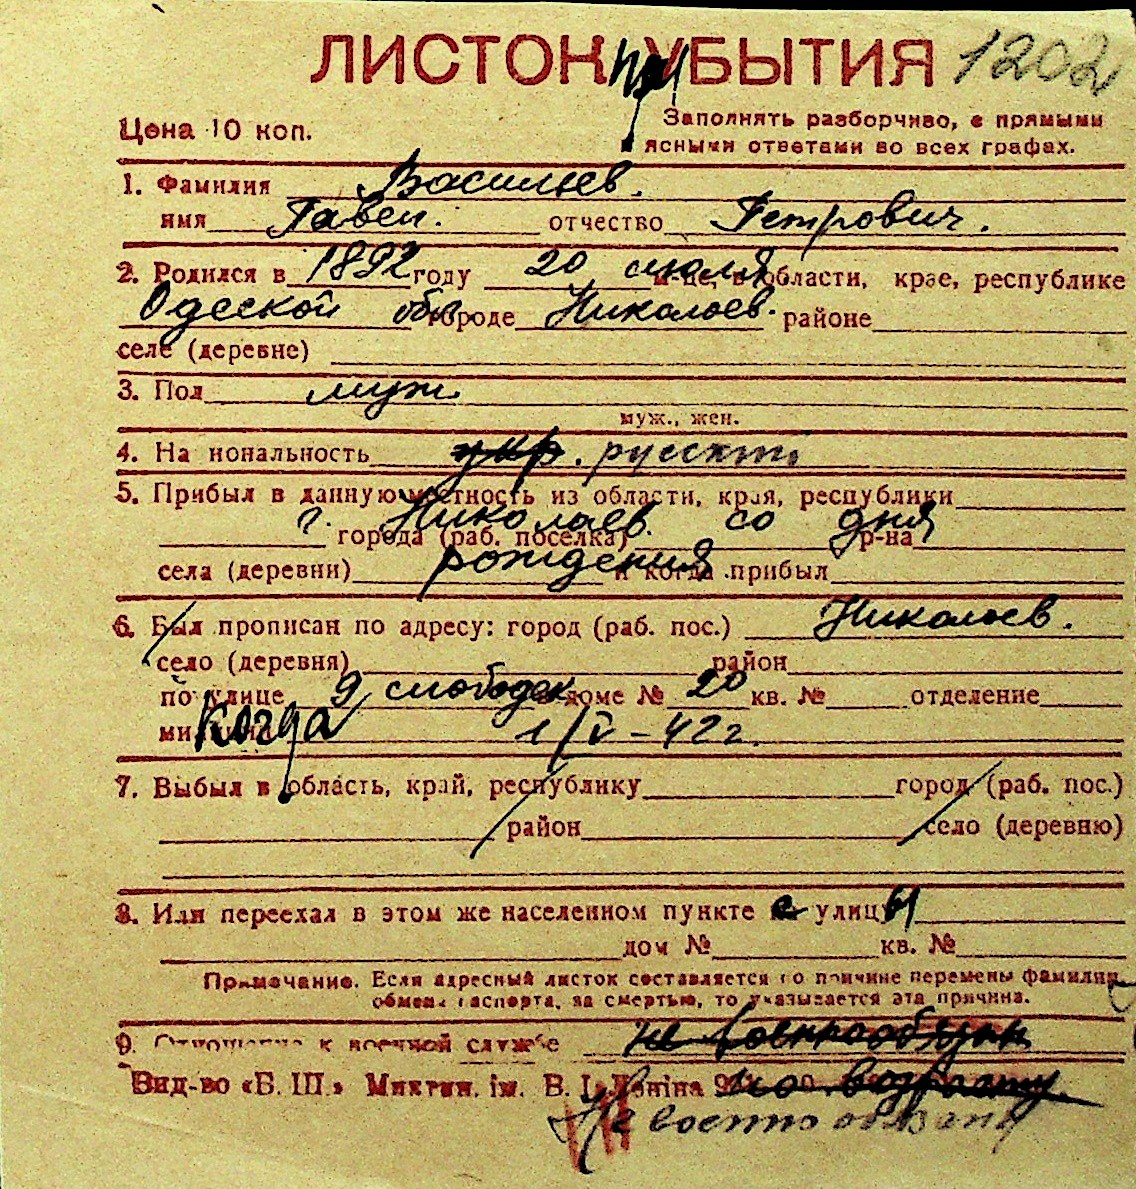 ЛИСТОК при УБЫТИЯ 1202
Цена 10 коп.
Заполнять разборчиво, с прямыми
ясными ответами во всех графах.
1. Фамилия Васильев.
имя Павел. отчество Петрович.
2. Родился в 1892 году 20 июля м-це, в области, крае, республике
Одеской обл. городе Николаев. районе
селе (деревне)
3. Пол муж
муж., жен.
4. На иональность укр. русский
5. Прибыл в данную местность из области, края, республики
г. Николаев. со дня
города (раб. поселка) р-на
рождения
села (деревни) и когда прибыл
6. Был прописан по адресу: город (раб. пос.) Николаев.
село (деревня) район
по улице 9 слободск в доме № 20 кв. № отделение
милиции когда 1/V-42 г.
7. Выбыл в область, край, республику город (раб. пос.)
район село (деревню)
8. Или переехал в этом же населенном пункте с улицы
дом № кв. №
Примечание. Если адресный листок составляется по причине перемены фамилии,
обмена паспорта, за смертью, то указывается эта причина.
9. Отношение к военной службе не военнообязан
Вид-во «Б. Ш.» Микгин. ім. В. І. Леніна по возрасту.
Не военно обязан